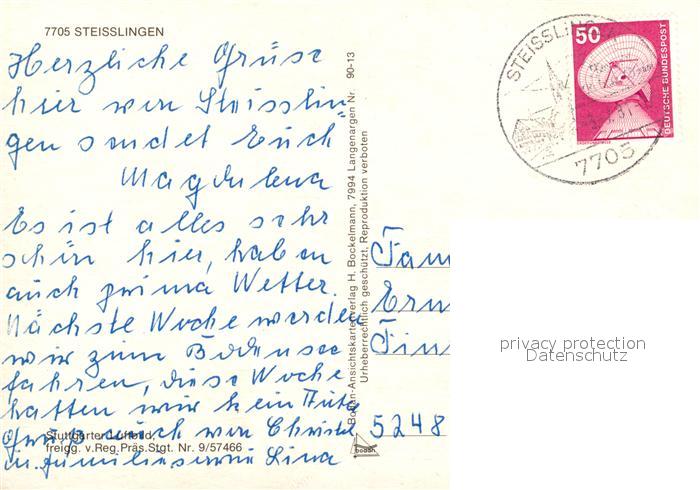 7705 STEISSLINGEN
Herzliche Grüse
hier von Steisslin
gen sendet Euch
Magdalena
Es ist alles sehr
schön hier, haben
auch prima Wetter.
Nächste Woche werden
wir zum Bodensee
fahren, diese Woche
hatten wir kein Auto
Gruß auch von Christel
u. Familie sowie Lina
Stuttgarter Luftbild,
freigg. v. Reg. Präs. Stgt. Nr. 9/57466
Bodan-Ansichtskartenverlag H. Bockelmann, 7994 Langenargen Nr 90-13
Urheberrechtlich geschützt. Reproduktion verboten
bodan
STEISSLINGEN
7705
50
DEUTSCHE BUNDESPOST
Fam
Ern
Fin
5248
privacy protection
Datenschutz